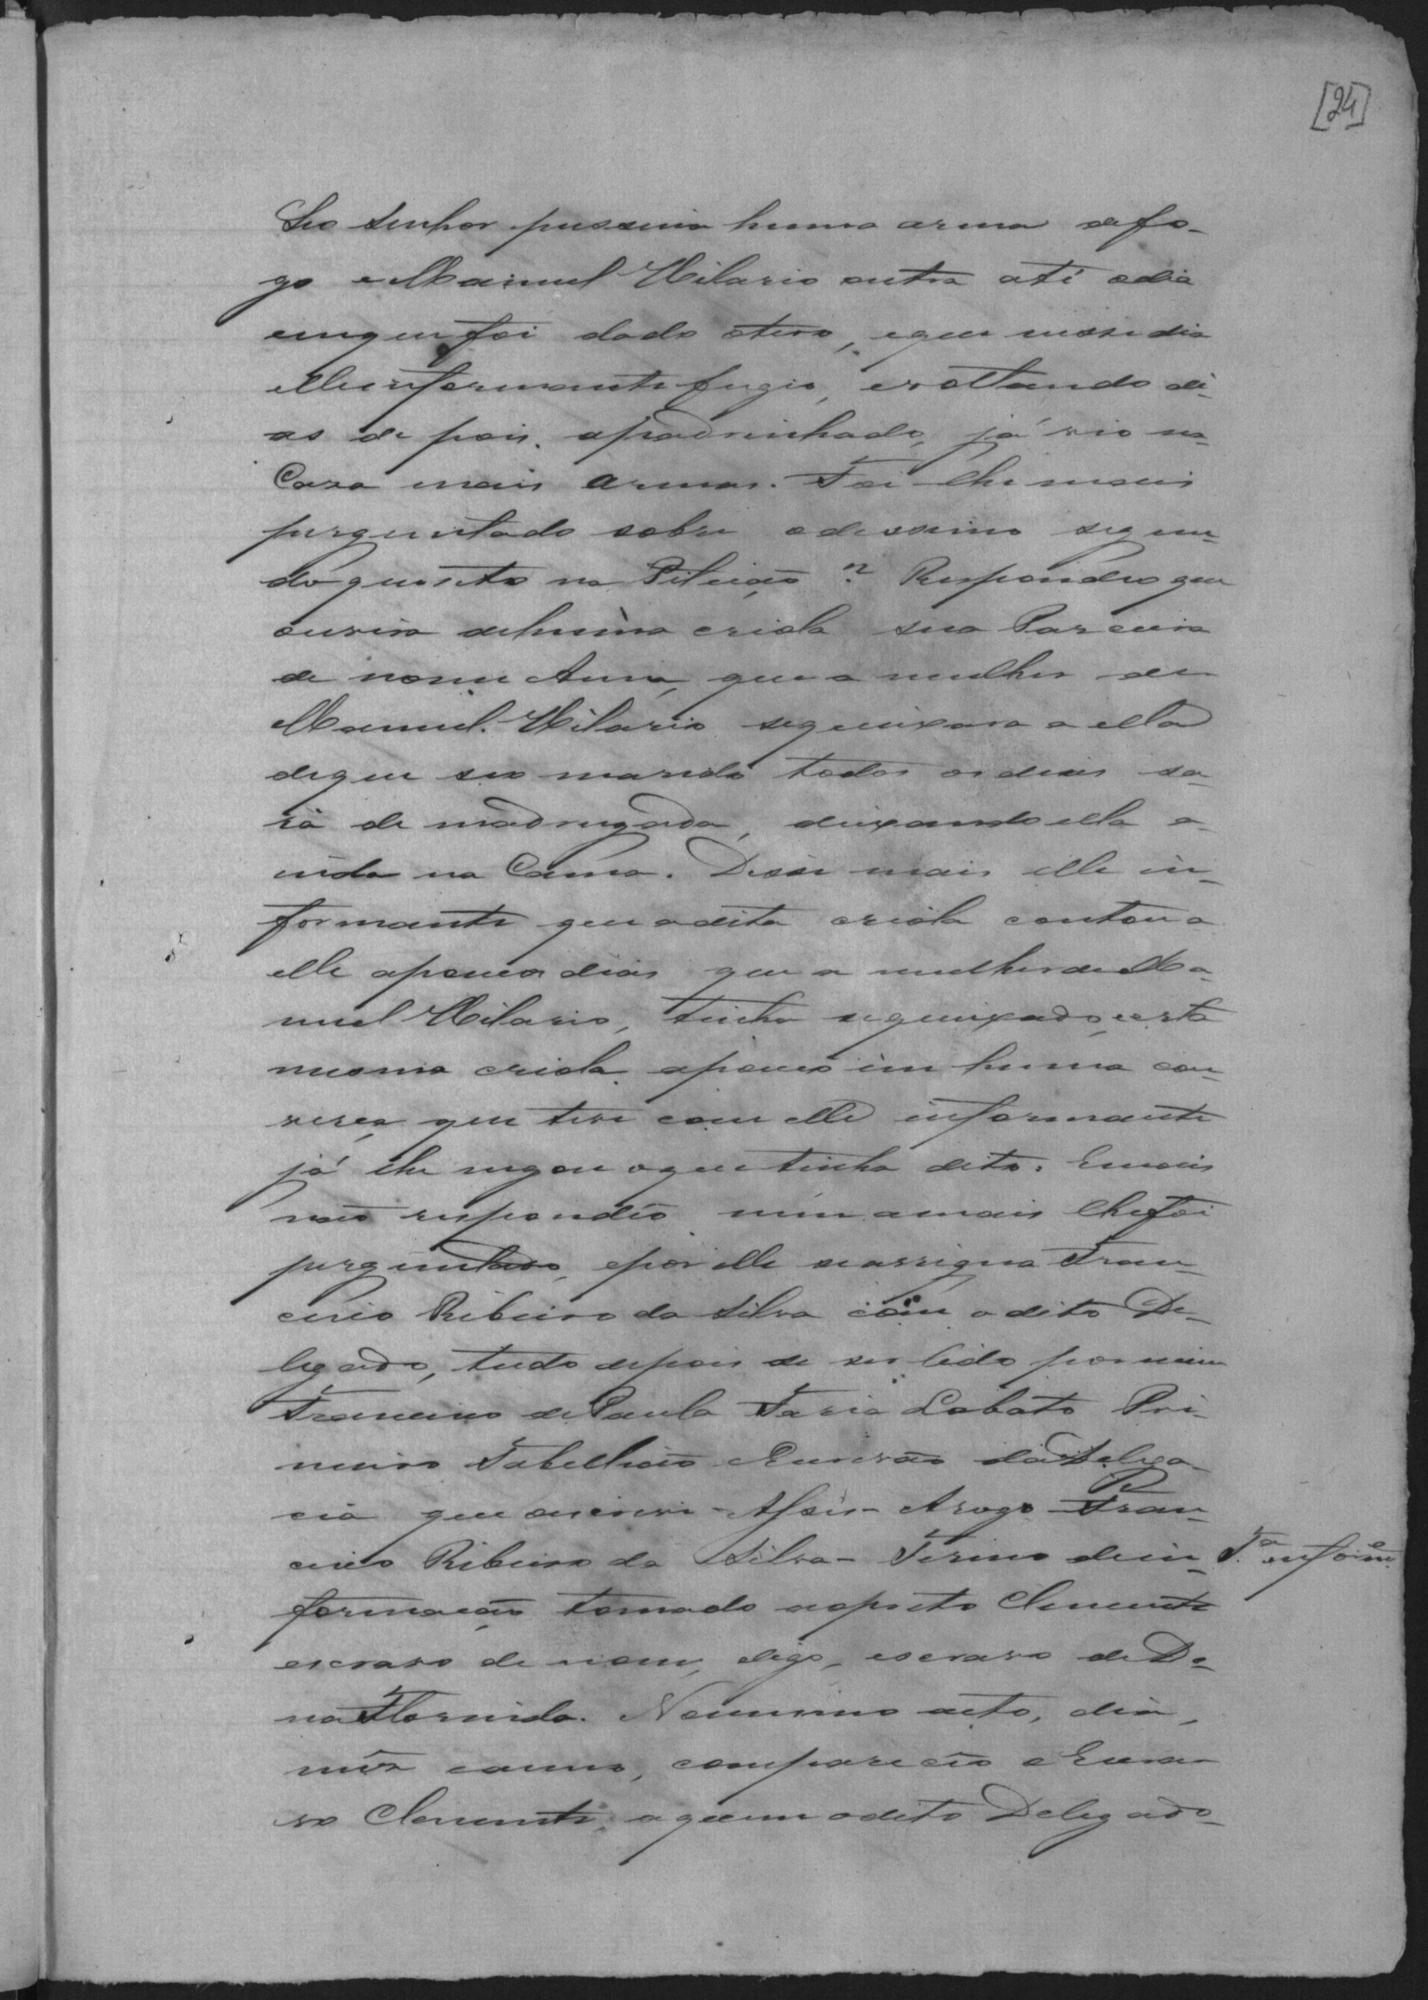 [24]
Seo Senhor pussuia huma arma defo-
go eManuel Hilario outra até odia
emque foi dado otiro, eque nesse dia
elle informante fugio, evoltando di-
as de pois, apadrinhado, já vio na
Caza mais armas. Foi lhe mais
purguntado sobre odessimo segun-
do quesito na Pitição? Respondeo que
ouvira dehuma criola sua Parceira
de nome Anna, que a mulher de
Manuel Hilario sequeixara a ella
deque seo marido todos osdias sa-
ia de madrugada, deixando ella a-
inda na Cama. Disse mais elle in-
formante que adita criola contou a
elle apoucos dias que a mulher de Ma-
nuel Hilario, tinha sequeixado, eesta
mesma criola apouco im huma con-
versa, que teve com elle informante
já lhe negou oque tinha dito. Emais
não respondeo nim amais lhe foi
purguntado, epor elle seassigna Fran-
cisco Ribeiro da Silva com o dito De-
legado, tudo depois de ser lido por mim
Francisco de Paula Faria Lobato Pri-
meiro Tabelliaõ eEscrivaõ da Delega-
cia que escrivi - Assis - Arogo - Fran-
cisco Ribeiro da Silva - Termo de in-
formação tomado aopreto Clemente
escravo de nome, digo, escravo de Do-
na Florinda. Nomesmo acto, dia,
mês eanno, compareceo oEscra-
vo Clemente, aquem odito Delegado
T.ª inform.